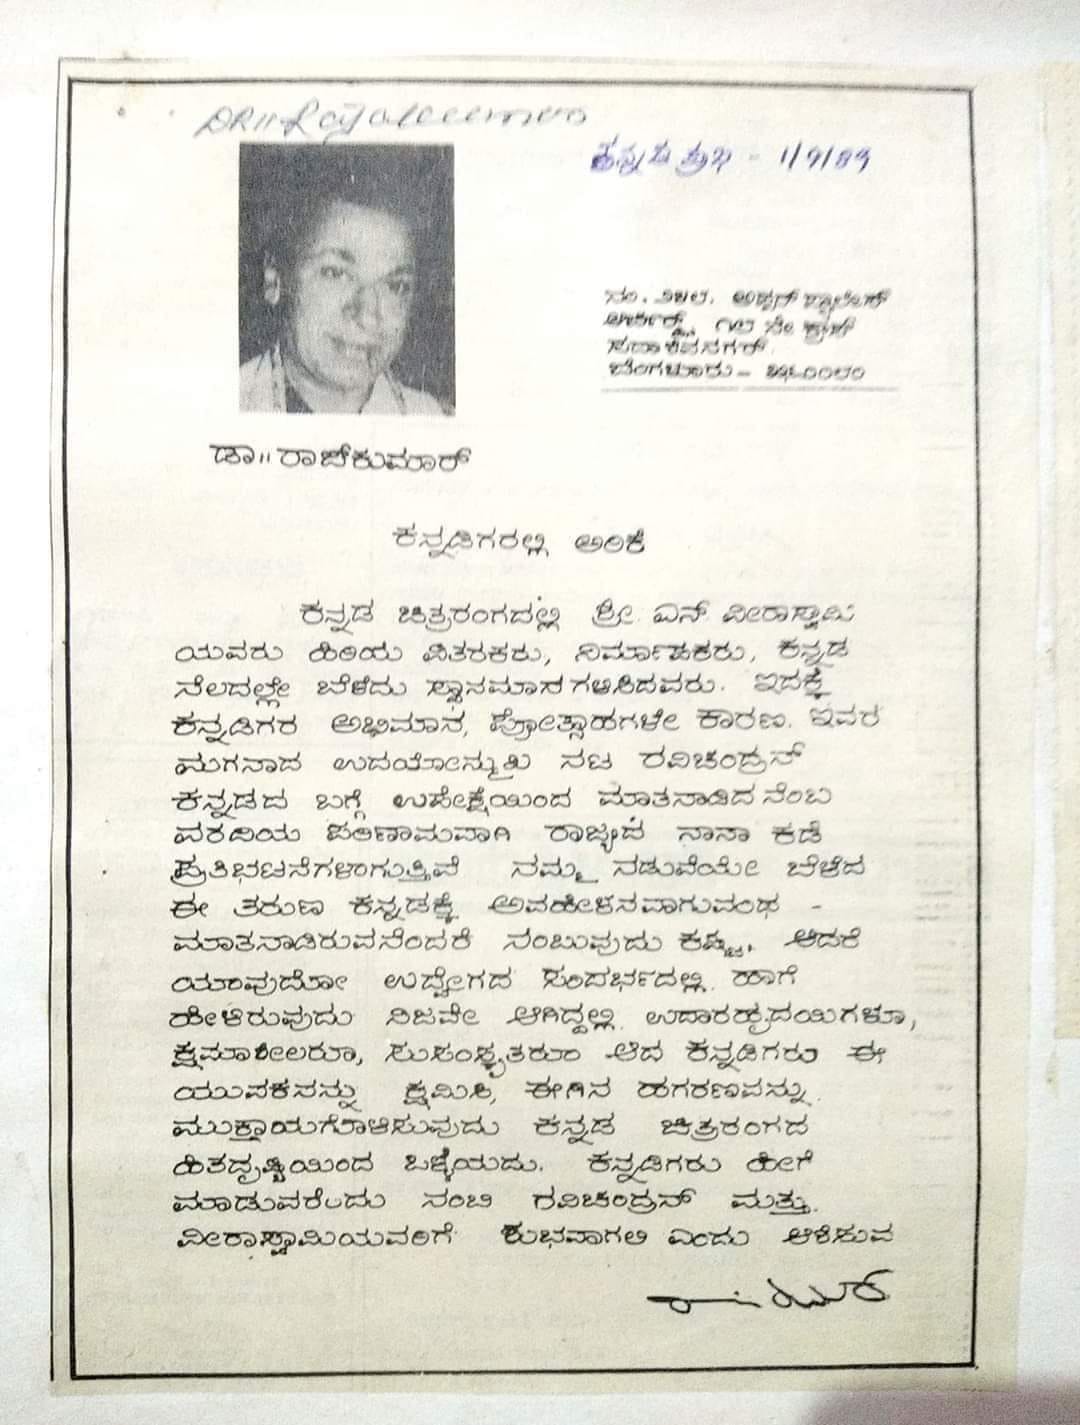 DR||Rajakumar
ಕನ್ನಡ ಪ್ರಭ - 1/9/89
ಸದಾಶಿವನಗರ್
ಬೆಂಗಳೂರು - ೫೬೦೦೮೦
ಡಾ|| ರಾಜ್‌ಕುಮಾರ್
ಕನ್ನಡಿಗರಲ್ಲಿ ಅರಿಕೆ
ಕನ್ನಡ ಚಿತ್ರರಂಗದಲ್ಲಿ ಶ್ರೀ ಎನ್ ವೀರಾಸ್ವಾಮಿ
ಯವರು ಹಿರಿಯ ವಿತರಕರು, ನಿರ್ಮಾಪಕರು, ಕನ್ನಡ
ನೆಲದಲ್ಲೇ ಬೆಳೆದು ಸ್ಥಾನಮಾನ ಗಳಿಸಿದವರು. ಇದಕ್ಕೆ
ಕನ್ನಡಿಗರ ಅಭಿಮಾನ, ಪ್ರೋತ್ಸಾಹಗಳೇ ಕಾರಣ. ಇವರ
ಮಗನಾದ ಉದಯೋನ್ಮುಖ ನಟ ರವಿಚಂದ್ರನ್
ಕನ್ನಡದ ಬಗ್ಗೆ ಉಪೇಕ್ಷೆಯಿಂದ ಮಾತನಾಡಿದನೆಂಬ
ವರದಿಯ ಪರಿಣಾಮವಾಗಿ ರಾಜ್ಯದ ನಾನಾ ಕಡೆ
ಪ್ರತಿಭಟನೆಗಳಾಗುತ್ತಿವೆ ನಮ್ಮ ನಡುವೆಯೇ ಬೆಳೆದ
ಈ ತರುಣ ಕನ್ನಡಕ್ಕೆ ಅವಹೇಳನವಾಗುವಂಥ -
ಮಾತನಾಡಿರುವನೆಂದರೆ ನಂಬುವುದು ಕಷ್ಟ. ಆದರೆ
ಯಾವುದೋ ಉದ್ವೇಗದ ಸಂದರ್ಭದಲ್ಲಿ ಹಾಗೆ
ಹೇಳಿರುವುದು ನಿಜವೇ ಆಗಿದ್ದಲ್ಲಿ ಉದಾರಹೃದಯಿಗಳೂ,
ಕ್ಷಮಾಶೀಲರೂ, ಸುಸಂಸ್ಕೃತರೂ ಆದ ಕನ್ನಡಿಗರು ಈ
ಯುವಕನನ್ನು ಕ್ಷಮಿಸಿ, ಈಗಿನ ಹಗರಣವನ್ನು
ಮುಕ್ತಾಯಗೊಳಿಸುವುದು ಕನ್ನಡ ಚಿತ್ರರಂಗದ
ಹಿತದೃಷ್ಟಿಯಿಂದ ಒಳ್ಳೆಯದು. ಕನ್ನಡಿಗರು ಹೀಗೆ
ಮಾಡುವರೆಂದು ನಂಬಿ ರವಿಚಂದ್ರನ್ ಮತ್ತು
ವೀರಾಸ್ವಾಮಿಯವರಿಗೆ ಶುಭವಾಗಲಿ ಎಂದು ಆಶಿಸುವ